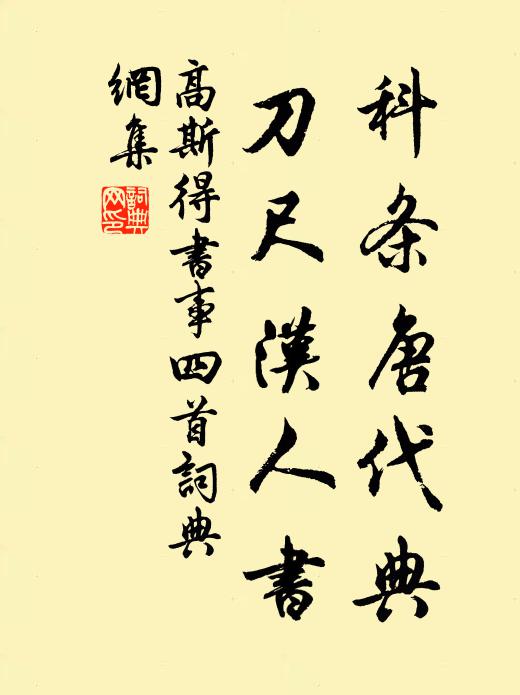 科条唐代典
刀尺漢人書
高斯得書事四首詞典
網集
詞典
网印